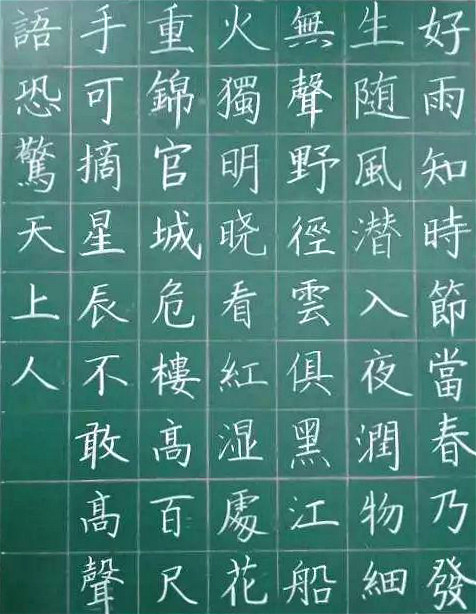 好雨知時節當春乃發
生随風潜入夜潤物細
無聲野徑雲俱黑江船
火獨明晓看紅湿處花
重錦官城危樓高百尺
手可摘星辰不敢高聲
語恐驚天上人